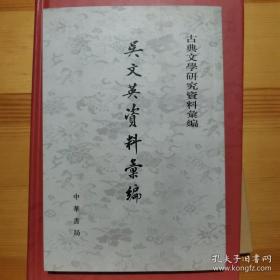 古典文學研究資料彙編
吳文英資料彙編
中華書局
孔夫子旧书网